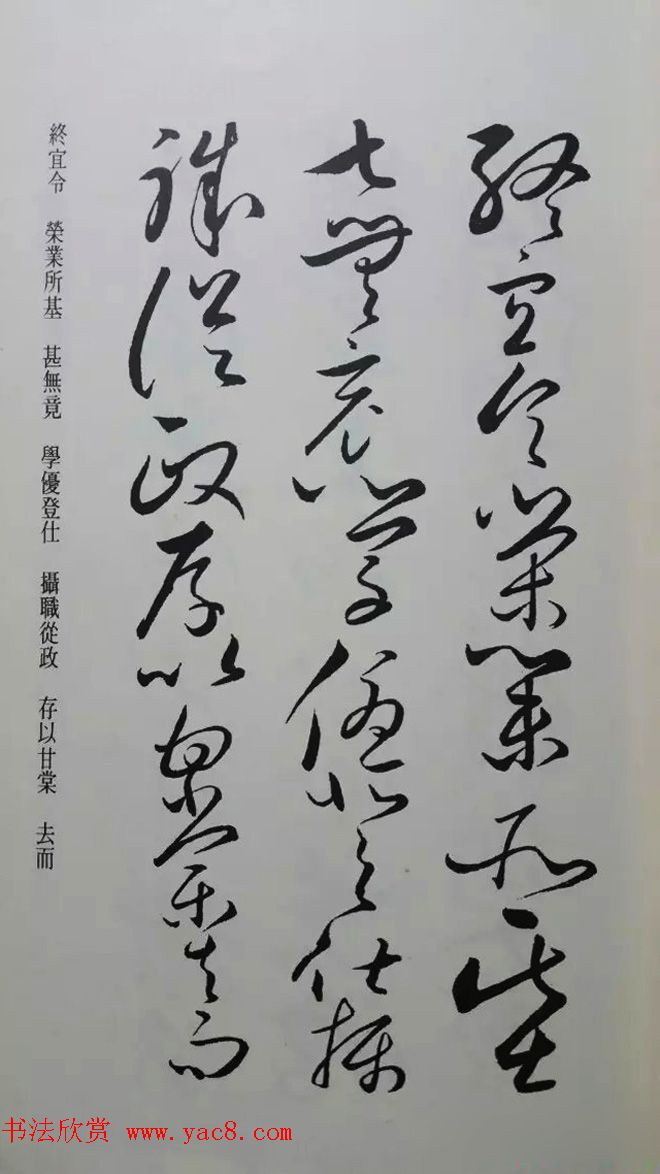 終宜令榮業所基
甚無竟學優登仕攝
職從政存以甘棠去而
終宜令 榮業所基 甚無竟 學優登仕 攝職從政 存以甘棠 去而
书法欣赏 www.yac8.com